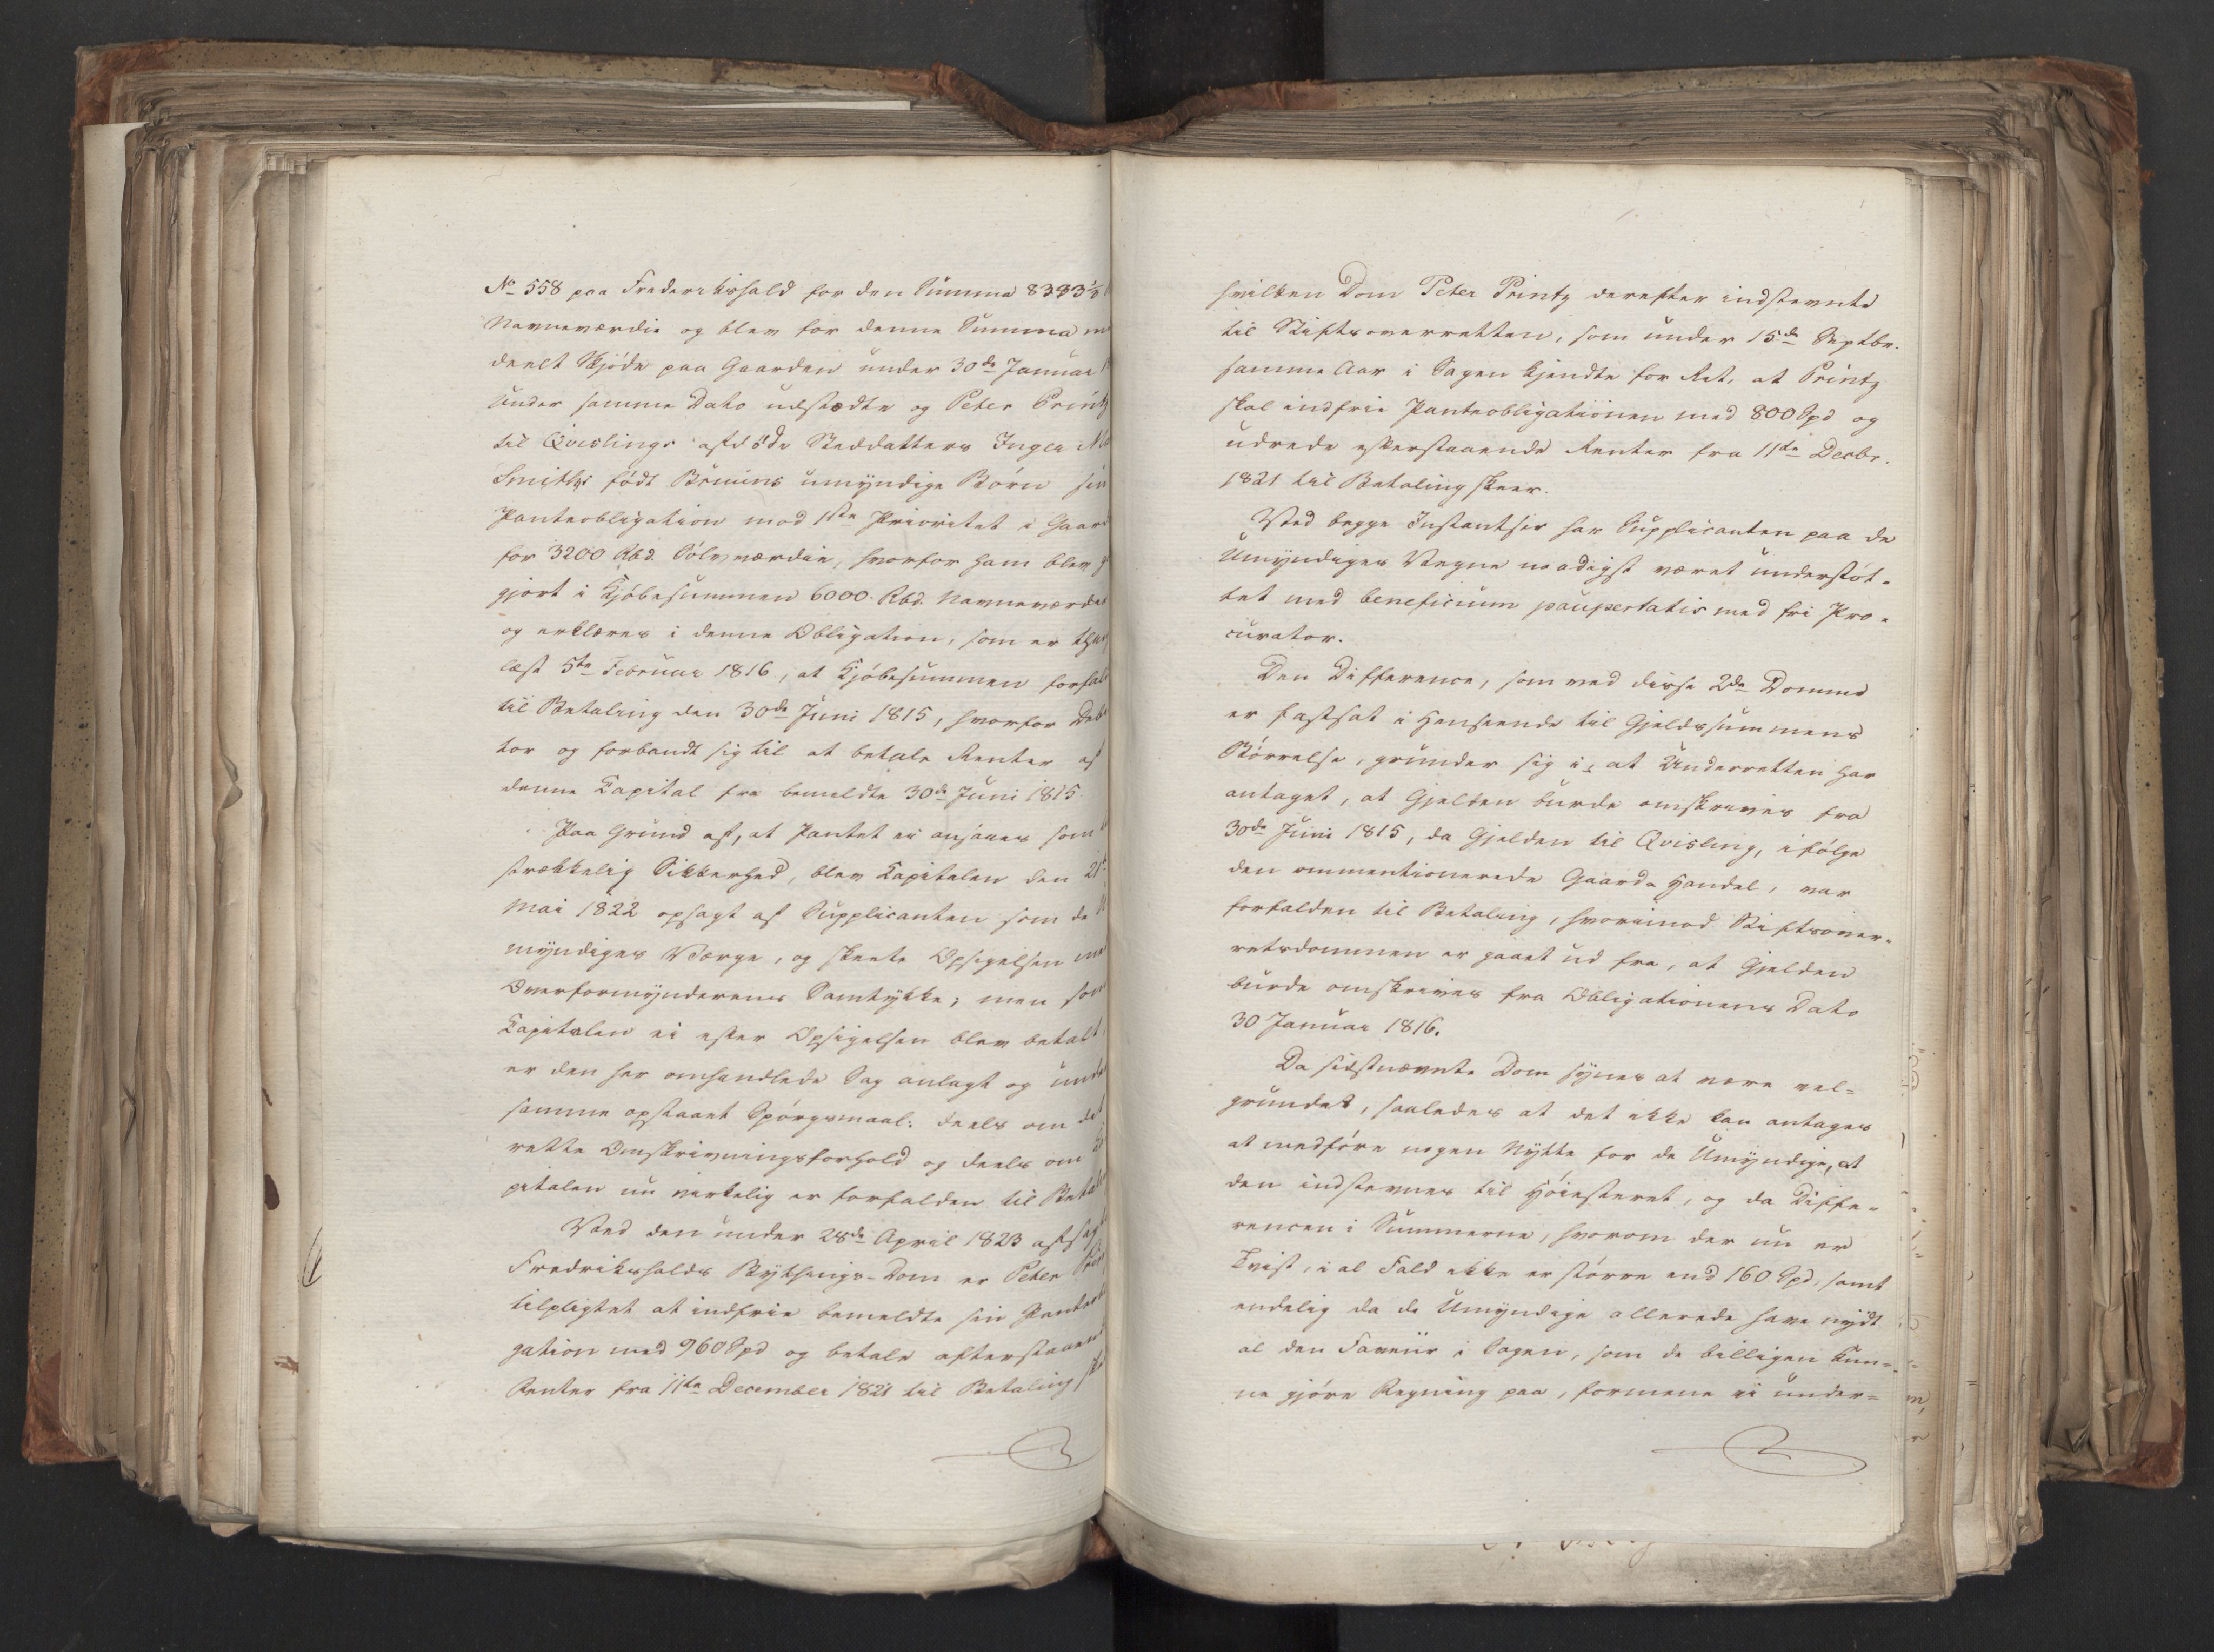 No 558 paa Frederikshald for den Summa 8333 1/3
Navneværdie og blev for denne Summa
deelt Skjøde paa Gaarden under 30de Januar
Under samme Dato udstædte og Peter Printz
til Qvislings afdøde Steddatters Inger
Smiths født Bruuns umyndige Børn sin
Panteobligation mod 1ste Prioritet i Gaard
for 3200 Rbd. Sølvværdie, hvorfor ham blev
gjort i Kjøbesummen 6000 Rbd. Navneværdie
og erklæres i denne Obligation, som er
læst 5te Februar 1816, at Kjøbesummen forfaldt
til Betaling den 30de Juni 1815, hvorfor Debi
tor og forbandt sig til at betale Renter af
denne Kapital fra bemeldte 30de Juni 1815.
Paa Grund af, at Pantet ei ansaaes som
strækkelig Sikkerhed, blev Kapitalen den 21
Mai 1822 opsagt af Supplicanten som de U
myndiges Værge, og skeete Opsigelsen med
Overformynderens Samtykke; men som
Kapitalen ei efter Opsigelsen blev betalt,
er den her omhandlede Sag anlagt og under
samme opstaaet Spørgsmaal: deels om det
rette Omskrivningsforhold og deels om Ka
pitalen nu virkelig er forfalden til Betal
Ved den under 28de April 1823 afsagde
Fredrikshalds Bythings-Dom er Peter Printz
tilpligtet at indfrie bemeldte sin Panteobli
gation med 960 Spd og betale efterstaaende
Renter fra 11te December 1821 til Betaling
hvilken Dom Peter Printz derefter indstevnte
til Stiftsoverretten, som under 15de Septbr.
samme Aar i Sagen kjendte for Ret, at Printz
skal indfrie Panteobligationen med 800 Spd og
udrede efterstaaende Renter fra 11te Decbr.
1821 til Betaling skeer.
Ved begge Instantser har Supplicanten paa de
Umyndiges Vegne naadigst været understøt-
tet med beneficium paupertatis med fri Pro-
curator.
Den Difference, som ved disse 2de Domme
er fastsat i Henseende til Gjeldssummens
Størrelse, grunder sig i, at Underretten har
antaget, at Gjelden burde omskrives fra
30de Juni 1815, da Gjelden til Qvisling, ifølge
den ommentionerede Gaards Handel, var
forfalden til Betaling, hvorimod Stiftsover-
retsdommen er gaaet ud fra, at Gjelden
burde omskrives fra Obligationens Dato
30 Januar 1816.
Da sidstnævnte Dom synes at være vel-
grundet, saaledes at det ikke kan antages
at medføre nogen Nytte for de Umyndige, at
den indstevnes til Høiesteret, og da Diffe-
rencen i Summerne, hvorom der nu er
Tvist, i al Fald ikke er større end 160 Spd, samt
endelig da de Umyndige allerede have nydt
al den Faveur i Sagen, som de billigen kun-
ne gjøre Regning paa, formene vi under-